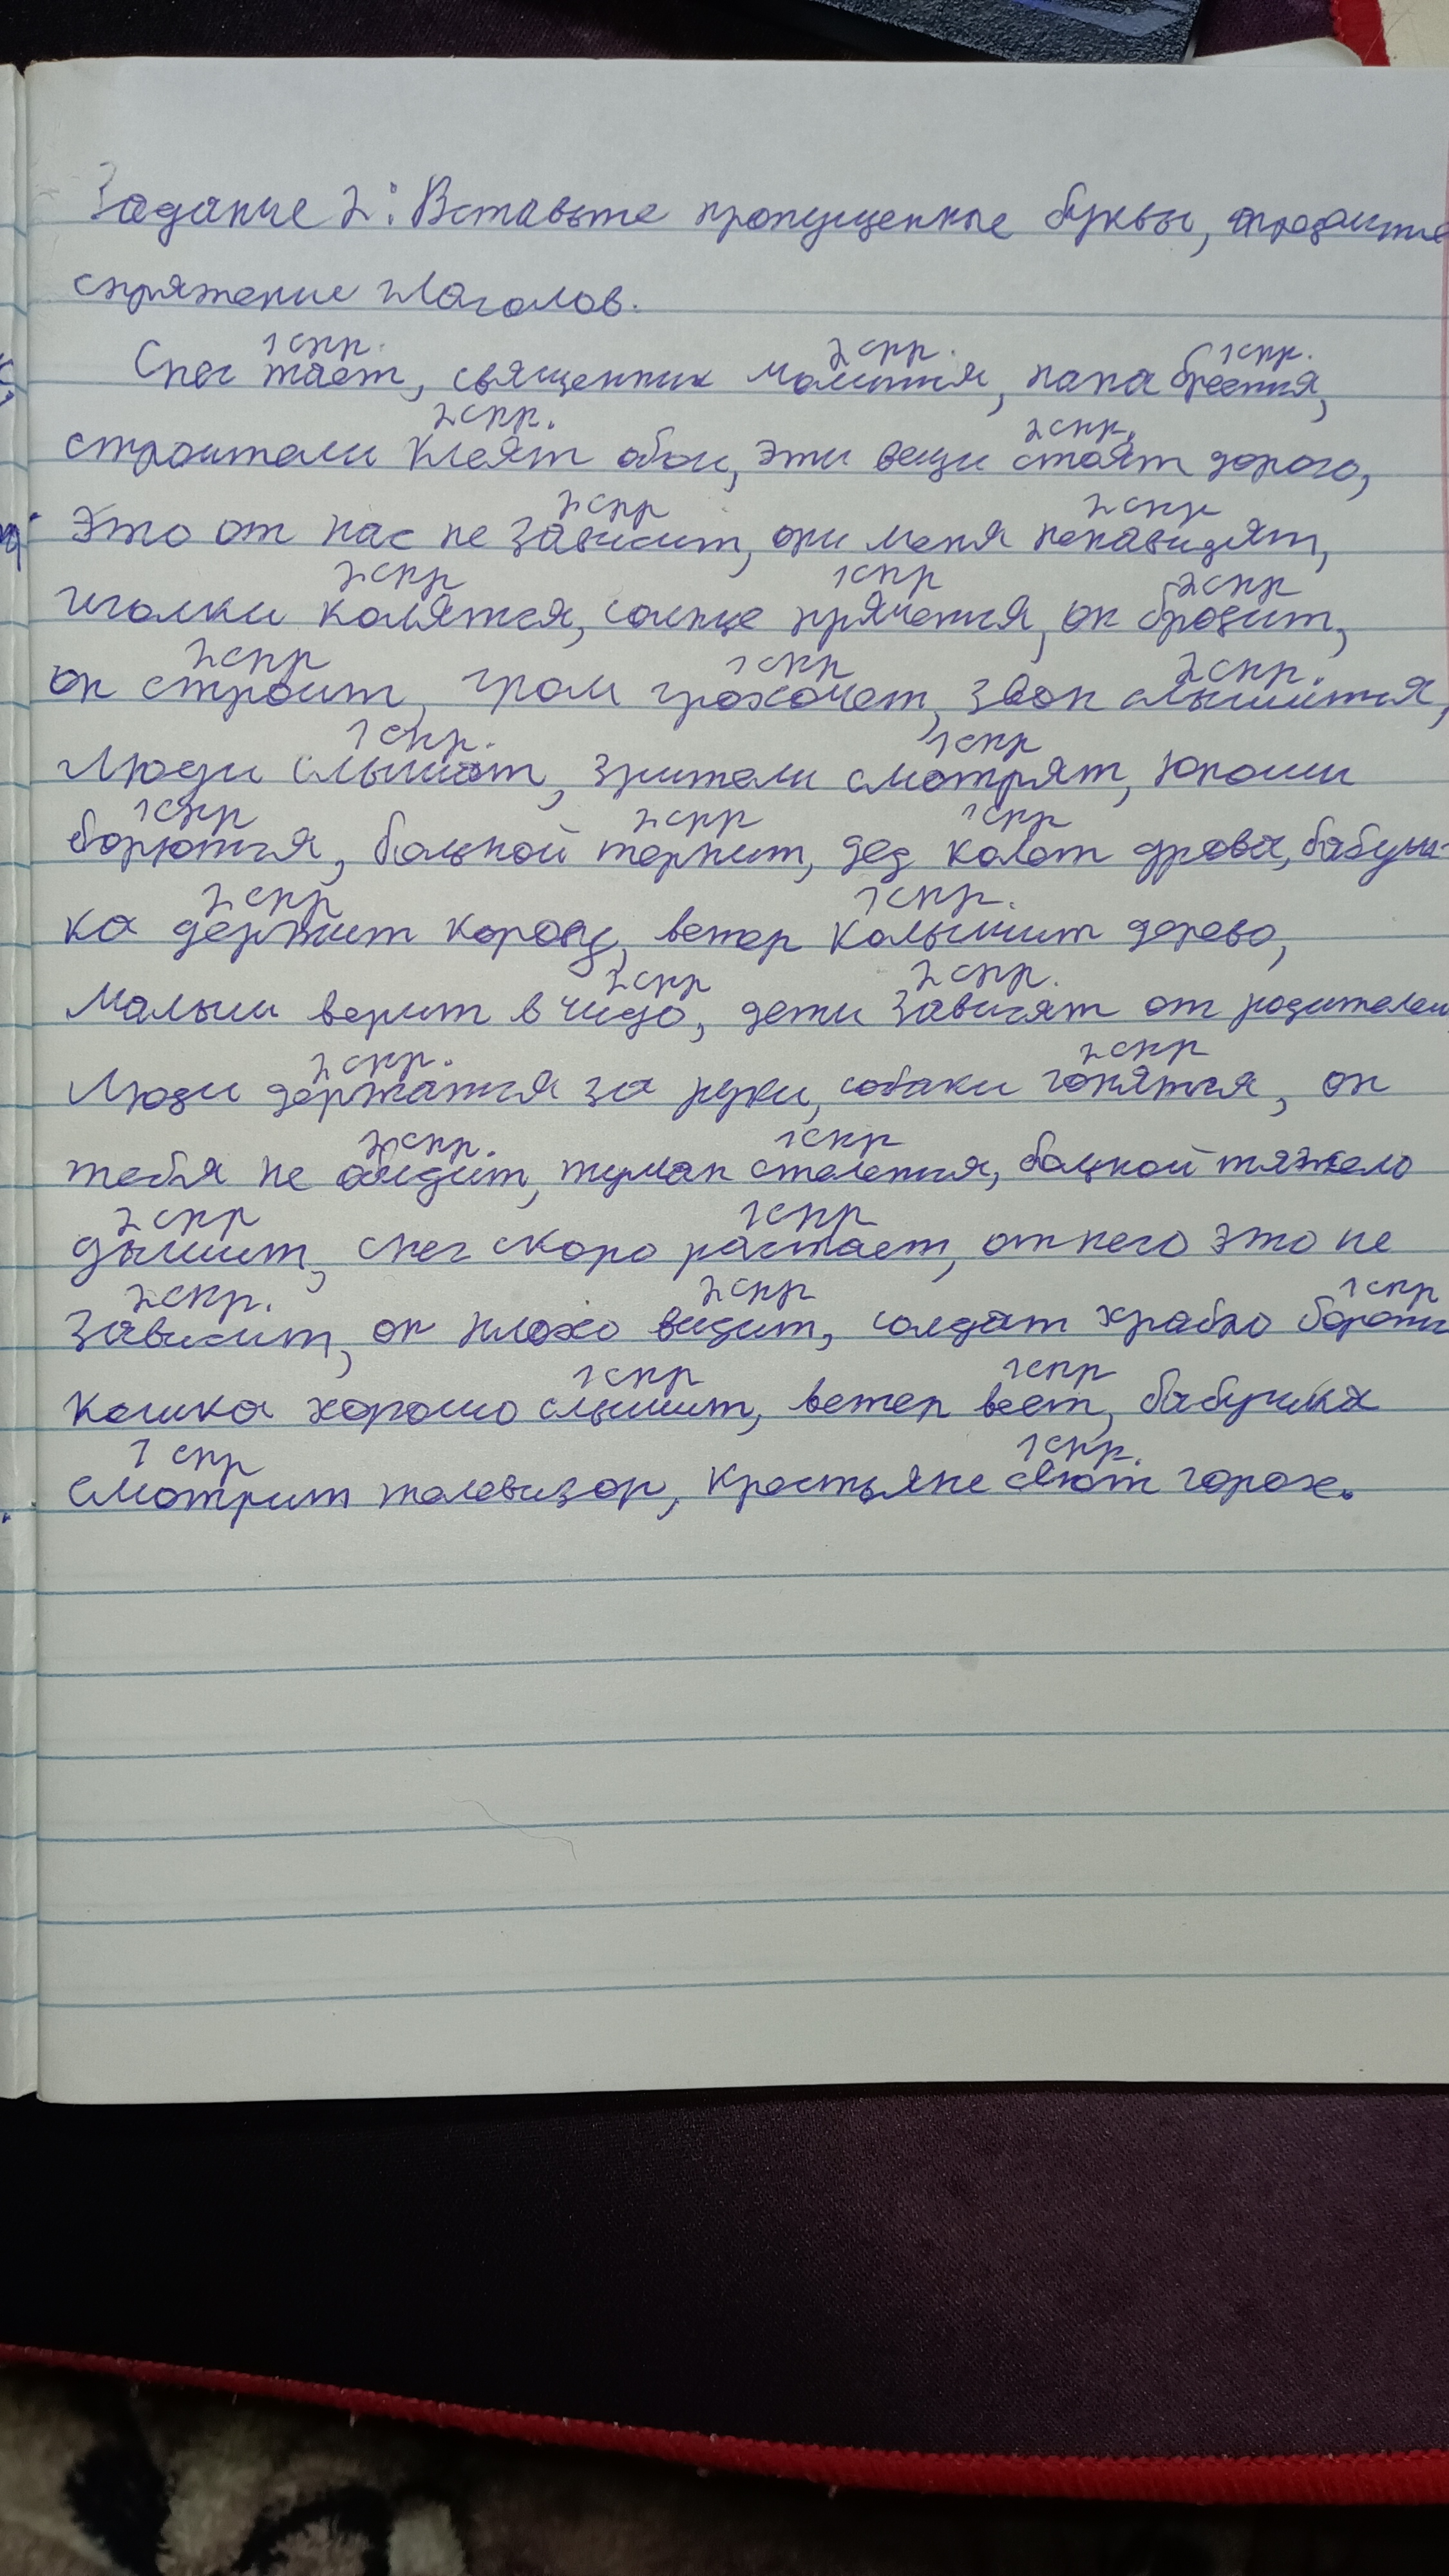 Задание 2: Вставьте пропущенные буквы, 
спряжение глаголов.
1 спр. 2 спр. 1 спр.
Снег тает, священник молится, папа бреется,
2 спр. 2 спр.
строители клеят обои, эти вещи стоят дорого,
2 спр 2 спр
Это от нас не зависит, они меня ненавидят,
2 спр 1 спр 2 спр
иголки колятся, солнце прячется, он бродит,
2 спр 1 спр 2 спр.
он строит, гром грохочет, звон слышится,
1 спр. 1 спр
Люди слышат, зрители смотрят, юноши
1 спр 2 спр 1 спр
борются, больной терпит, дед колет дрова, бабуш-
2 спр 1 спр.
ка держит корову, ветер колышит дерево,
2 спр 2 спр.
Малыш верит в чудо, дети зависят от родителей
2 спр. 2 спр
Люди держатся за руки, собаки гонятся, он
2 спр. 1 спр
тебя не обидит, туман стелется, больной тяжело
2 спр 1 спр
дышит, снег скоро растает, от него это не
2 спр. 2 спр 1 спр
зависит, он плохо видит, солдат храбро
1 спр 1 спр
Кошка хорошо слышит, ветер веет, бабушка
1 спр 1 спр.
смотрит телевизор, крестьяне сеют горох.